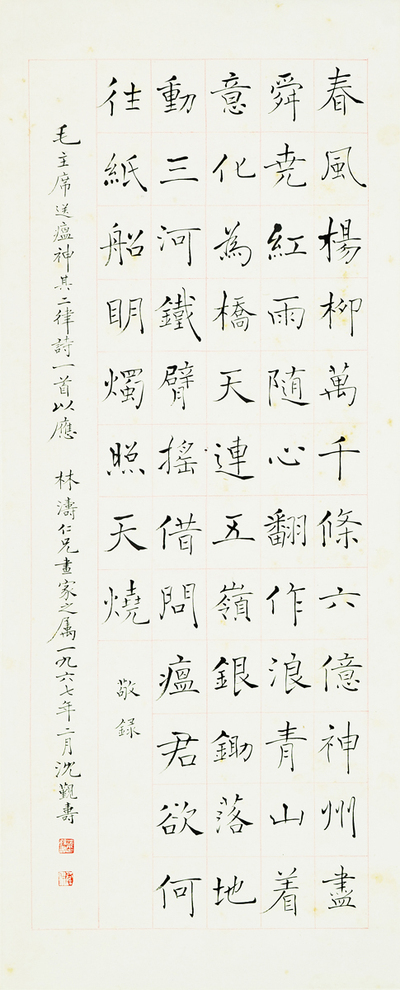 春風楊柳萬千條六億神州盡
舜尭紅雨随心翻作浪青山着
意化為橋天連五嶺銀鋤落地
動三河鐵臂搖借問瘟君欲何
往紙船明燭照天燒 敬錄
毛主席送瘟神其二律詩一首以應 林濤仁兄畫家之属一九六七年二月沈覲壽